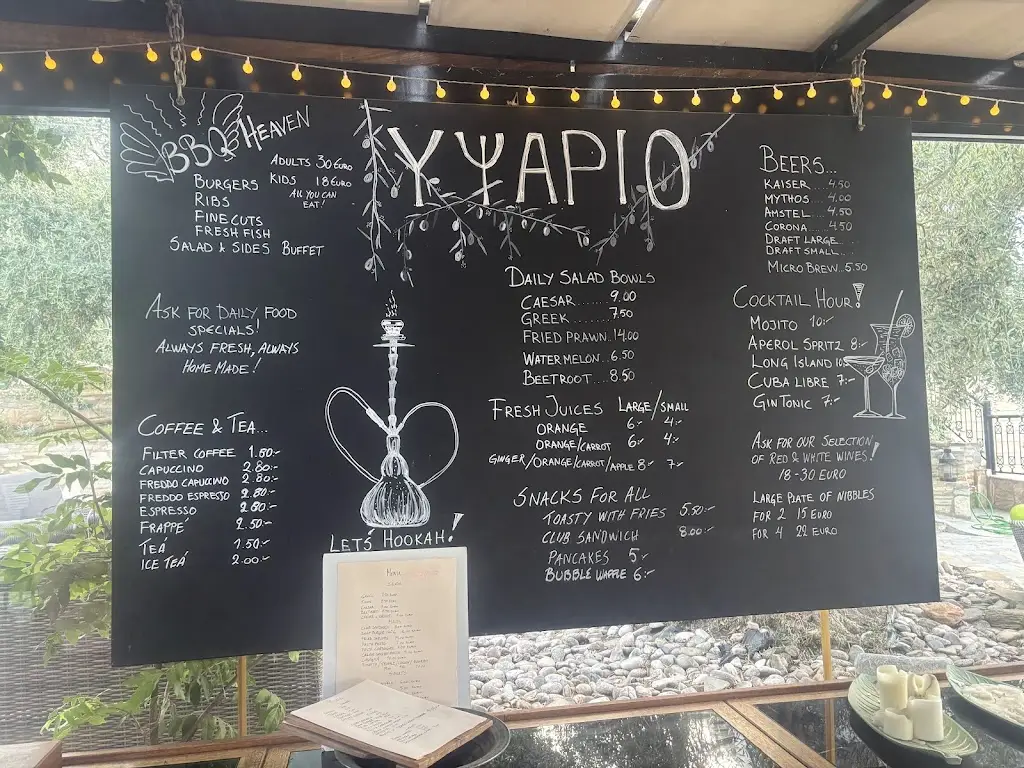 BBQ HEAVEN
ADULTS 30 EURO
KIDS 18 EURO
ALL YOU CAN
EAT!
BURGERS
RIBS
FINE CUTS
FRESH FISH
SALAD & SIDES BUFFET
ΥΨΑΡΙΟ
ASK FOR DAILY FOOD
SPECIALS!
ALWAYS FRESH, ALWAYS
HOME MADE!
COFFEE & TEA...
FILTER COFFEE 1.50:-
CAPUCCINO 2.80:-
FREDDO CAPUCCINO 2.80:-
FREDDO ESPRESSO 2.80:-
ESPRESSO 2.80:-
FRAPPÉ 2.50:-
TEÁ 1.50:-
ICE TEÁ 2.00:-
LET'S HOOKAH!
DAILY SALAD BOWLS
CAESAR........9.00
GREEK........7.50
FRIED PRAWN..14.00
WATERMELON...6.50
BEETROOT....8.50
FRESH JUICES LARGE/SMALL
ORANGE 6:- 4:-
ORANGE/CARROT 6:- 4:-
GINGER/ORANGE/CARROT/APPLE 8:- 7:-
SNACKS FOR ALL
TOASTY WITH FRIES 5.50:-
CLUB SANDWICH 8.00:-
PANCAKES 5:-
BUBBLE WAFFLE 6:-
BEERS...
KAISER....4.50
MYTHOS....4.00
AMSTEL....4.50
CORONA....4.50
DRAFT LARGE....
DRAFT SMALL....
MICRO BREW..5.50
COCKTAIL HOUR!
MOJITO 10:-
APEROL SPRITZ 8:-
LONG ISLAND 10:-
CUBA LIBRE 7:-
GIN TONIC 7:-
ASK FOR OUR SELECTION
OF RED & WHITE WINES!
18-30 EURO
LARGE PLATE OF NIBBLES
FOR 2 15 EURO
FOR 4 22 EURO
MENU